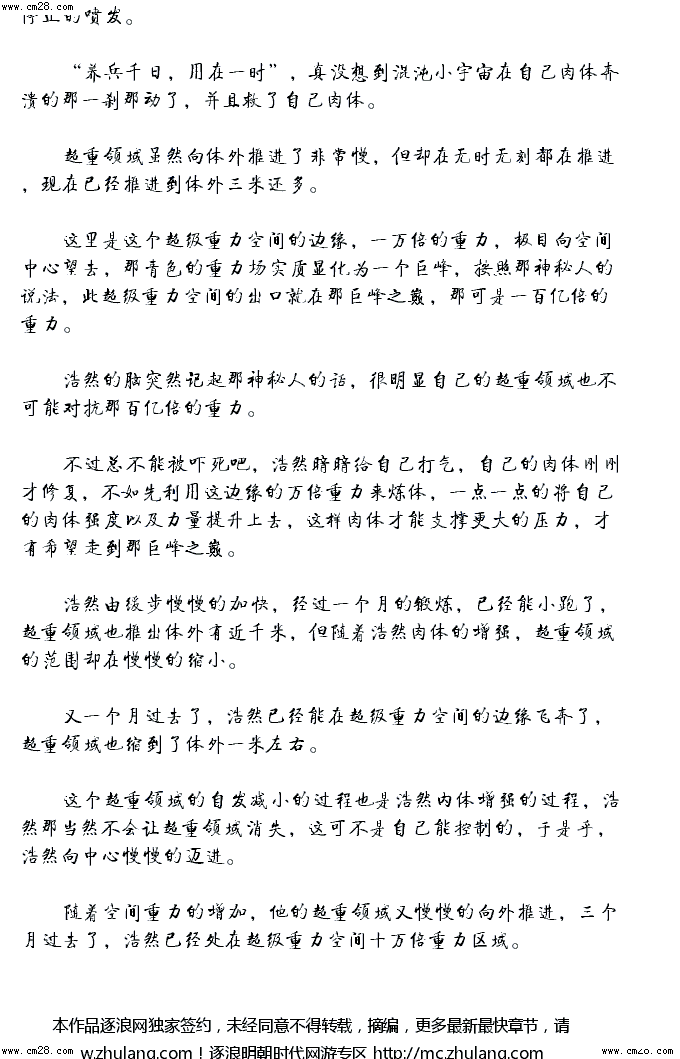 www.cm28.com
www.cm28.com
停止的喷发。
“养兵千日，用在一时”，真没想到混沌小宇宙在自己肉体奔
溃的那一刹那动了，并且救了自己肉体。
超重领域虽然向体外推进了非常慢，但却在无时无刻都在推进
，现在已经推进到体外三米还多。
这里是这个超级重力空间的边缘，一万倍的重力，极目向空间
中心望去，那青色的重力场实质显化为一个巨峰，按照那神秘人的
说法，此超级重力空间的出口就在那巨峰之巅，那可是一百亿倍的
重力。
浩然的脑突然记起那神秘人的话，很明显自己的超重领域也不
可能对抗那百亿倍的重力。
不过总不能被吓死吧，浩然暗暗给自己打气，自己的肉体刚刚
才修复，不如先利用这边缘的万倍重力来炼体，一点一点的将自己
的肉体强度以及力量提升上去，这样肉体才能支撑更大的压力，才
有希望走到那巨峰之巅。
浩然由缓步慢慢的加快，经过一个月的锻炼，已经能小跑了，
超重领域也推出体外有近千米，但随着浩然肉体的增强，超重领域
的范围却在慢慢的缩小。
又一个月过去了，浩然已经能在超级重力空间的边缘飞奔了，
超重领域也缩到了体外一米左右。
这个超重领域的自发减小的过程也是浩然内体增强的过程，浩
然那当然不会让超重领域消失，这可不是自己能控制的，于是乎，
浩然向中心慢慢的迈进。
随着空间重力的增加，他的超重领域又慢慢的向外推进，三个
月过去了，浩然已经处在超级重力空间十万倍重力区域。
本作品逐浪网独家签约，未经同意不得转载，摘编，更多最新最快章节，请
www.cmzo.com
w.zhulang.com！逐浪明朝时代网游专区 http://mc.zhulang.com/
www.cmzo.com